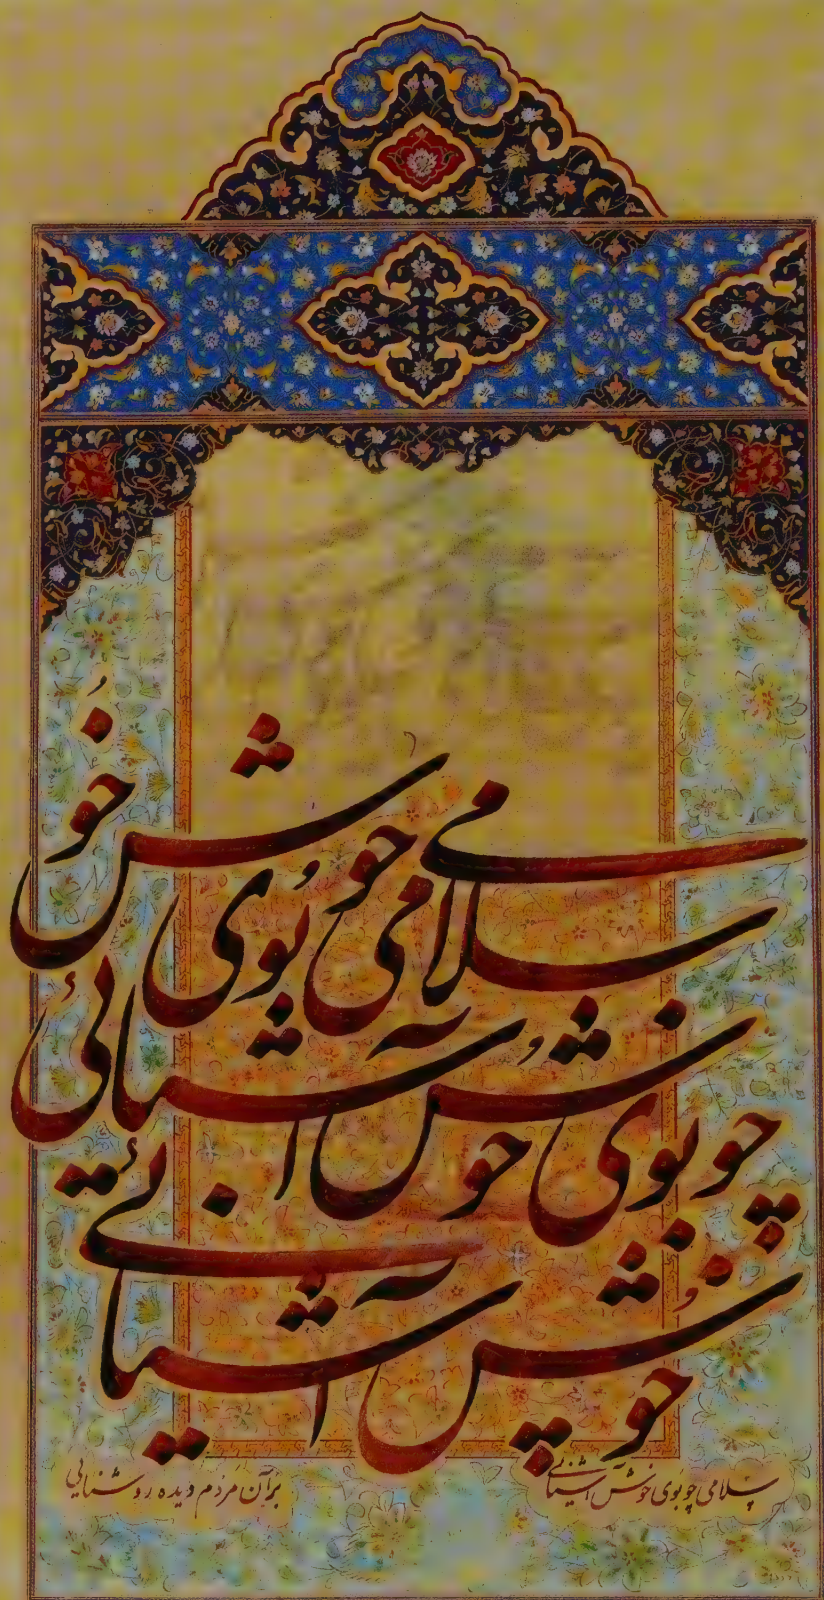 سلامی چو بوی خوش
چو بوی خوش آشنائی
خوش آشنائی
سلامی چو بوی خوش آشنائی
بر آن مُردم دیده روشنایی